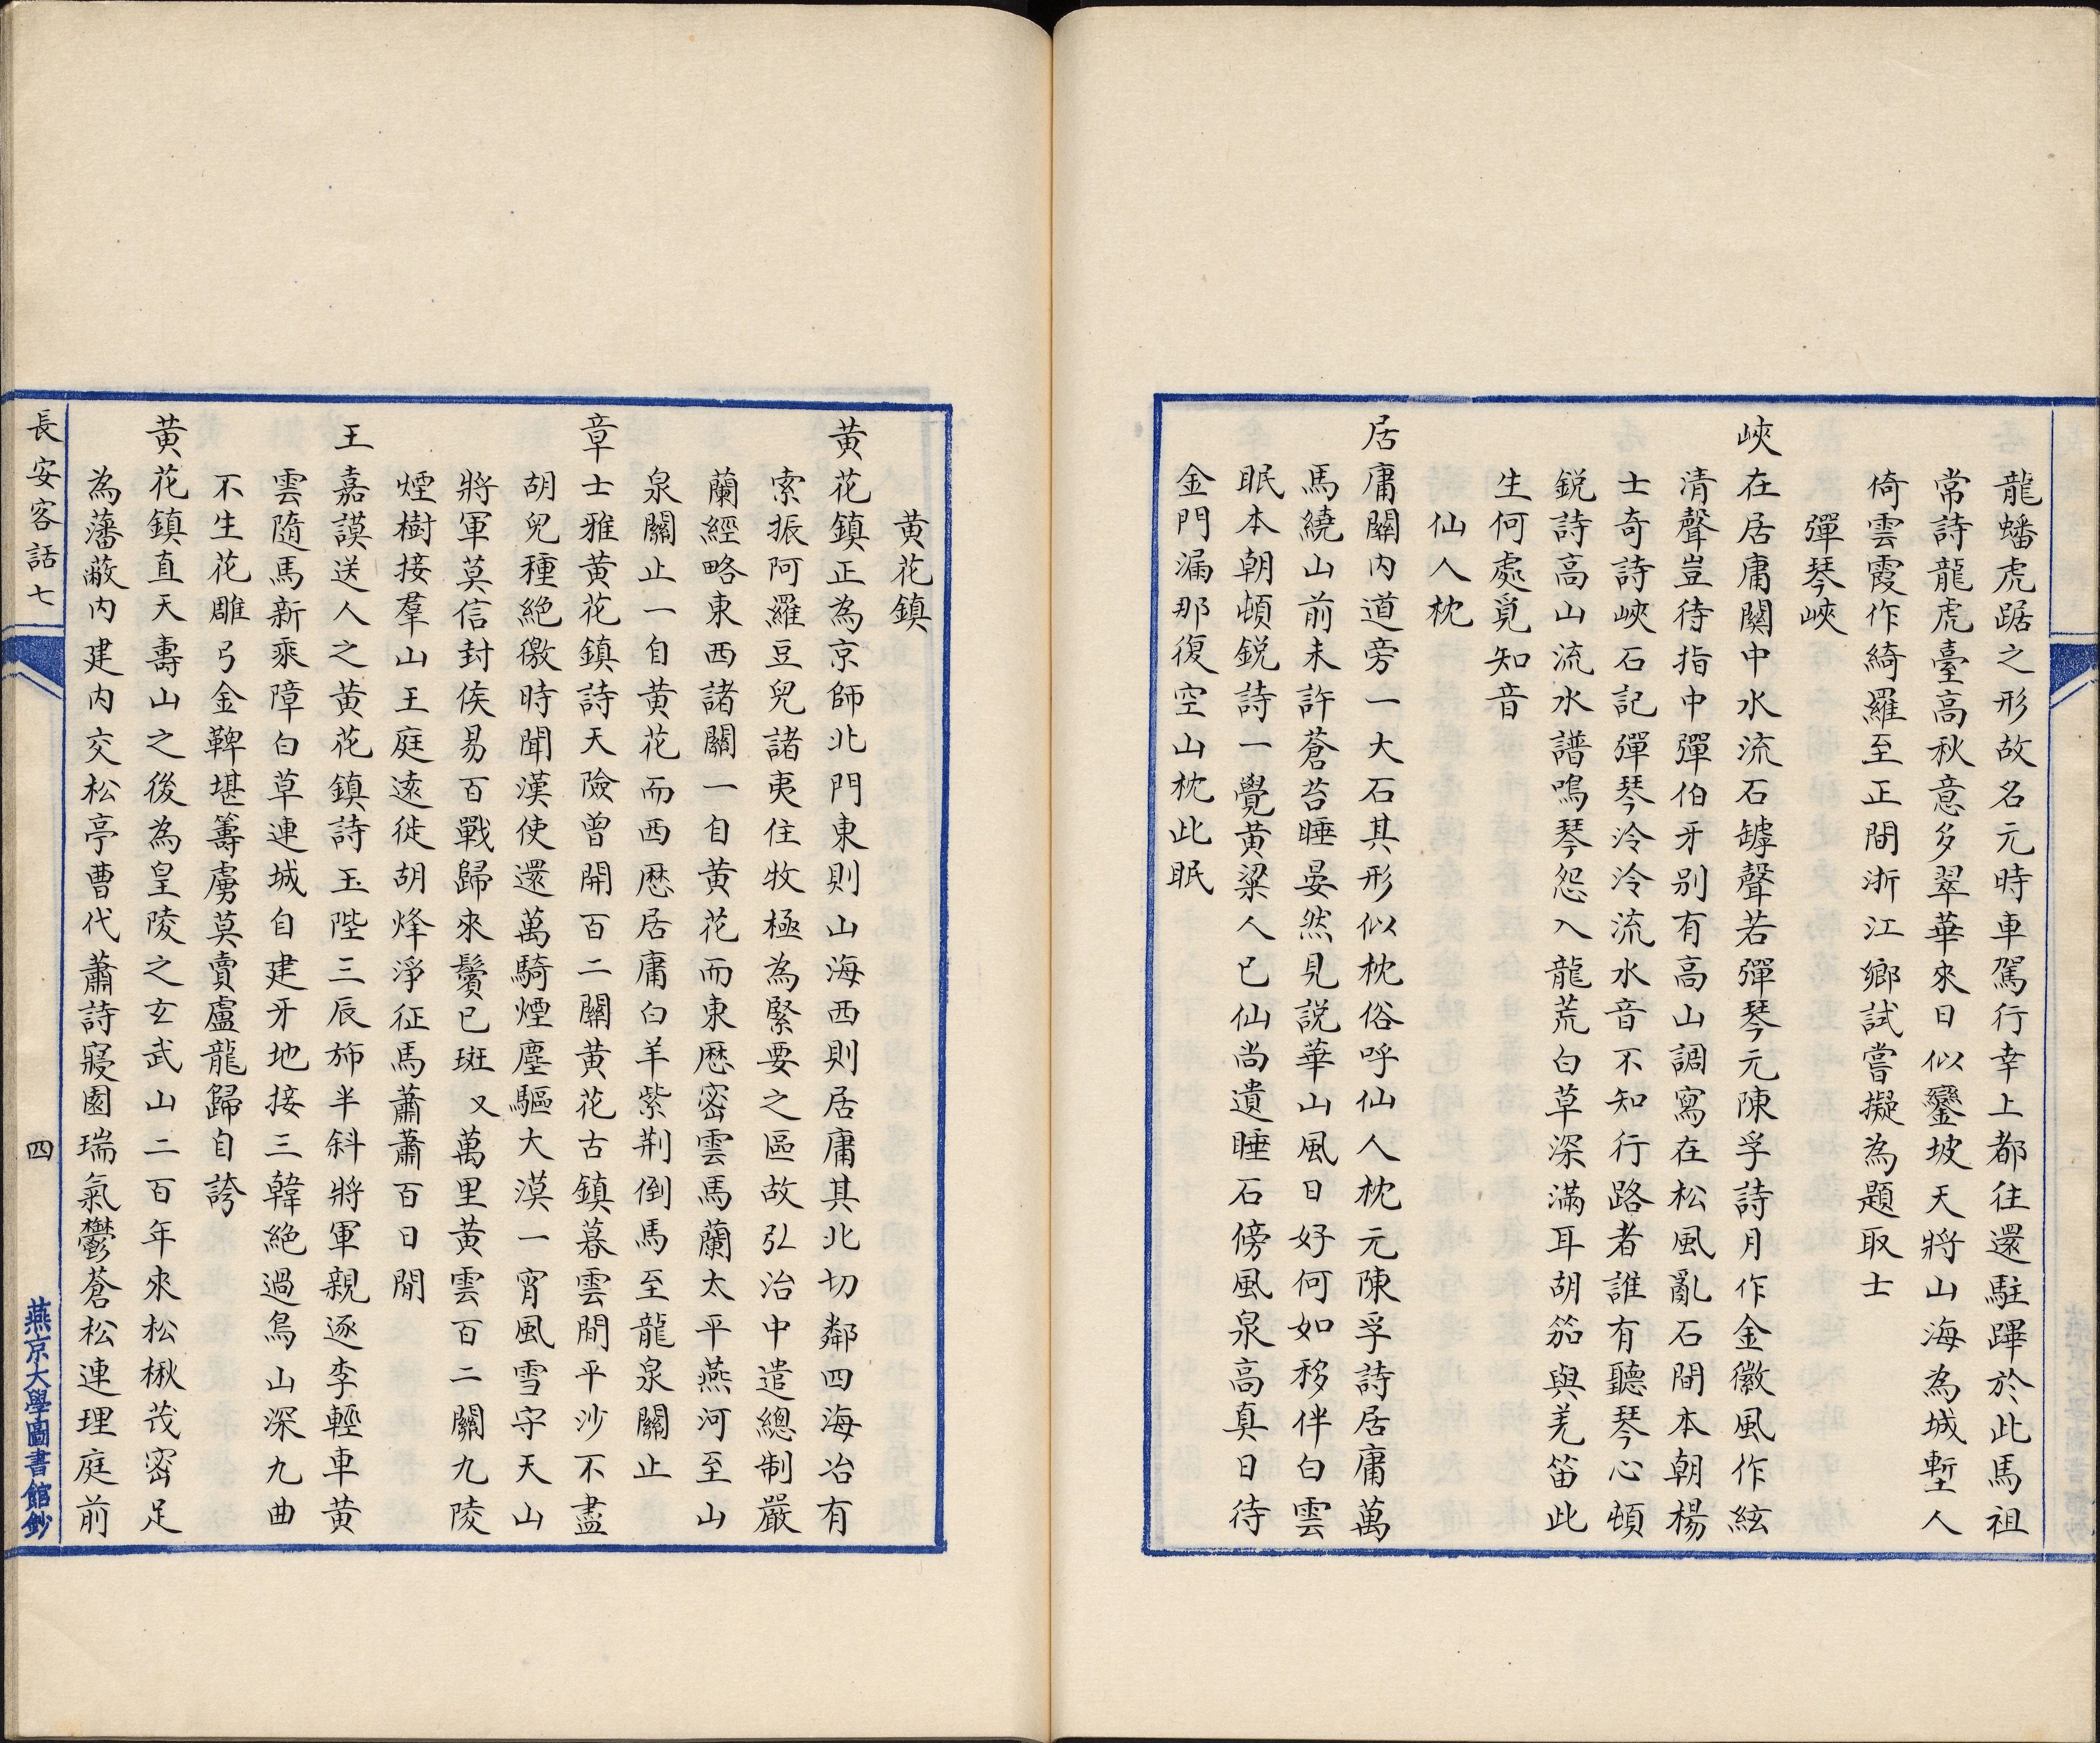 龍蟠虎踞之形故名元時車駕行幸上都往還駐蹕於此馬祖
常詩龍虎臺高秋意多翠華來日似鑾坡天將山海為城塹人
倚雲霞作綺羅至正間浙江鄉試嘗擬為題取士
彈琴峽
峽在居庸關中水流石罅聲若彈琴元陳孚詩月作金徽風作絃
清聲豈待指中彈伯牙別有高山調寫在松風亂石間本朝楊
士奇詩峽石記彈琴泠泠流水音不知行路者誰有聽琴心頓
銳詩高山流水譜鳴琴怨入龍荒白草深滿耳胡笳與羌笛此
生何處覓知音
仙人枕
居庸關內道旁一大石其形似枕俗呼仙人枕元陳孚詩居庸萬
馬繞山前未許蒼苔睡晏然見說華山風日好何如移伴白雲
眠本朝頓銳詩一覺黃粱人已仙尚遺睡石傍風泉高真日待
金門漏那復空山枕此眠
黃花鎮
黃花鎮正為京師北門東則山海西則居庸其北切鄰四海冶有
索振阿羅豆兒諸夷住牧極為緊要之區故弘治中遣總制嚴
蘭經略東西諸關一自黃花而東歷密雲馬蘭太平燕河至山
泉關止一自黃花而西歷居庸白羊紫荊倒馬至龍泉關止
章士雅黃花鎮詩天險曾開百二關黃花古鎮暮雲間平沙不盡
胡兒種絕徼時聞漢使還萬騎煙塵驅大漠一宵風雪守天山
將軍莫信封侯易百戰歸來鬢已斑 又萬里黃雲百二關九陵
煙樹接羣山王庭遠徙胡烽淨征馬蕭蕭百日閒
王嘉謨送人之黃花鎮詩玉陛三辰旆半斜將軍親逐李輕車黃
雲隨馬新乘障白草連城自建牙地接三韓絕過鳥山深九曲
不生花雕弓金鞞堪籌虜莫賣盧龍歸自誇
黃花鎮直天壽山之後為皇陵之玄武山二百年來松楸茂密足
為藩蔽內建內交松亭曹代蕭詩寢園瑞氣鬱蒼松連理庭前
長安客話七
四
燕京大學圖書館鈔